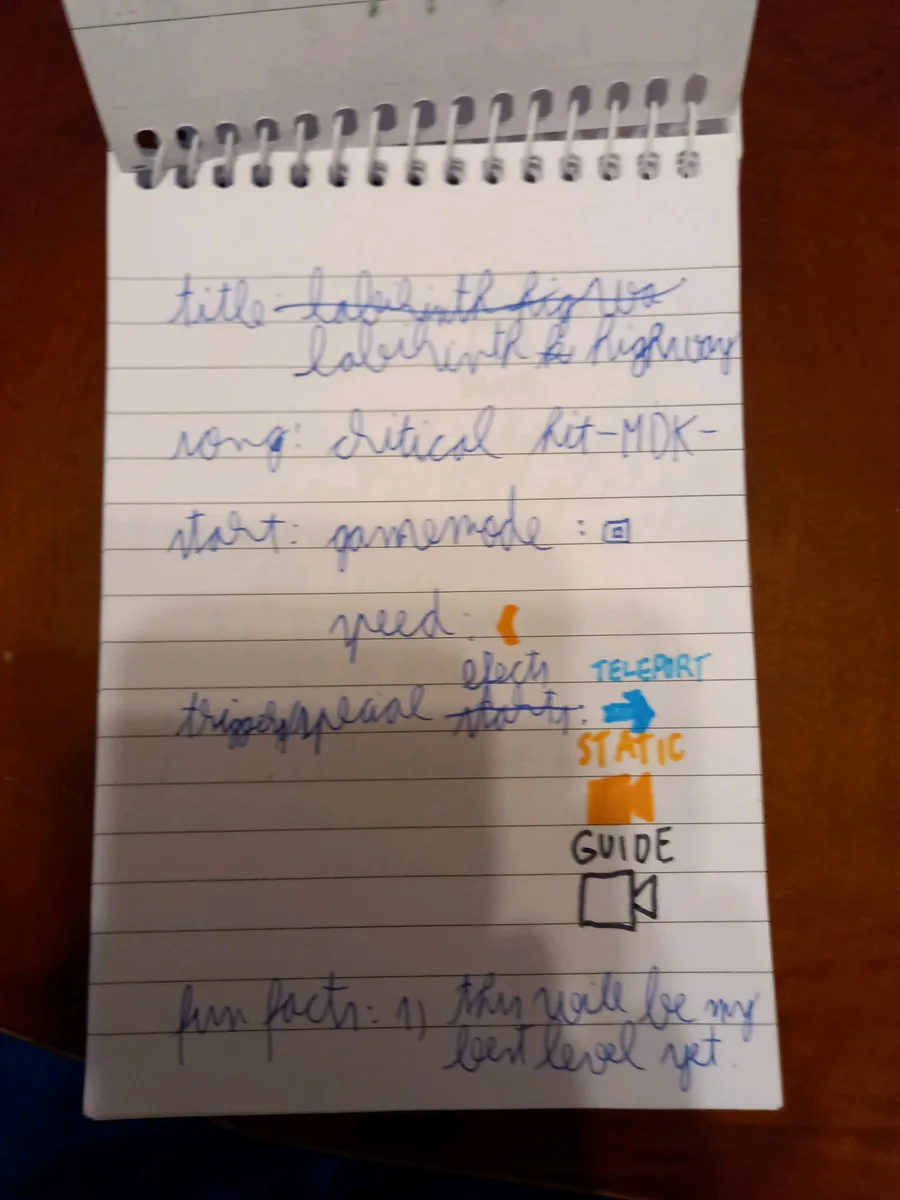 title: labirinth higwa
labirinth h highway
song: critical hit-MDK-
start: gamemode :
speed:
efects TELEPORT
triggers/special starts:
STATIC
GUIDE
fun facts: 1) this wile be my
best level yet.